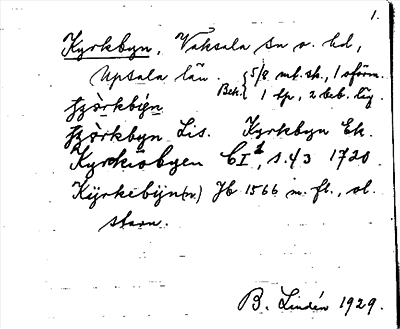 1.
Kyrkbyn, Vaksala sn o. hd,
Upsala län. Bek. { 5/8 mt. sk., 1 oförm.
1 lp, 2 beb. läg.
Kyrkbyn Lis. Kyrkbyn Ek.
Kyrkiobyen CI², s. 43 1720.
Kyrkebyn(n) Jb 1566 m. fl., ol.
stavn.
B. Lindén 1929.